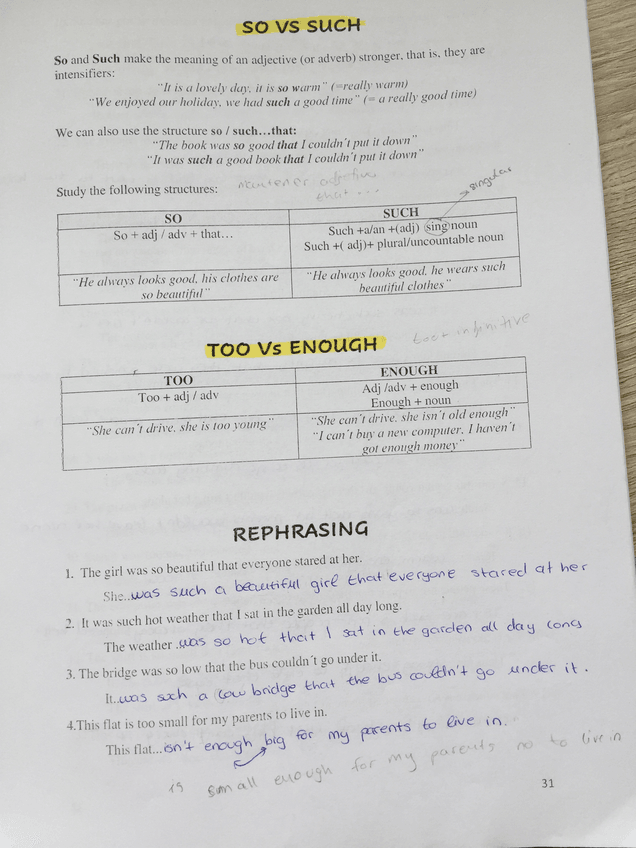 SO VS SUCH
So and Such make the meaning of an adjective (or adverb) stronger, that is, they are
intensifiers:
"It is a lovely day, it is so warm" (=really warm)
"We enjoyed our holiday, we had such a good time" (= a really good time)
We can also use the structure so / such…that:
"The book was so good that I couldn´t put it down"
"It was such a good book that I couldn´t put it down"
Study the following structures:
that ...
singular
SO
SUCH
So + adj / adv + that…
Such +a/an +(adj) sing noun
Such +( adj)+ plural/uncountable noun
"He always looks good, his clothes are
so beautiful"
"He always looks good, he wears such
beautiful clothes"
TOO Vs ENOUGH
too + infinitive
TOO
ENOUGH
Too + adj / adv
Adj /adv + enough
Enough + noun
"She can´t drive, she is too young"
"She can´t drive, she isn´t old enough"
"I can´t buy a new computer, I haven´t
got enough money"
REPHRASING
1. The girl was so beautiful that everyone stared at her.
She..was such a beautiful girl that everyone stared at her
2. It was such hot weather that I sat in the garden all day long.
The weather .was so hot that I sat in the garden all day long
3. The bridge was so low that the bus couldn´t go under it.
It..was such a low bridge that the bus couldn't go under it.
4.This flat is too small for my parents to live in.
This flat...isn't enough big for my parents to live in.
is small enough for my parents no to live in
31